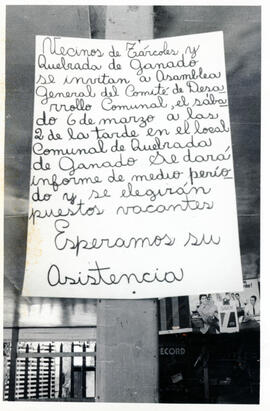 Vecinos de Tárcoles y
Quebrada de Ganado
se invitan a Asamblea
General del Comité de Desa
rrollo Comunal, el sába
do 6 de marzo a las
2 de la tarde en el local
Comunal de Quebrada
de Ganado Se dará
informe de medio perío
do y se elegirán
puestos vacantes
Esperamos su
Asistencia
ECORD